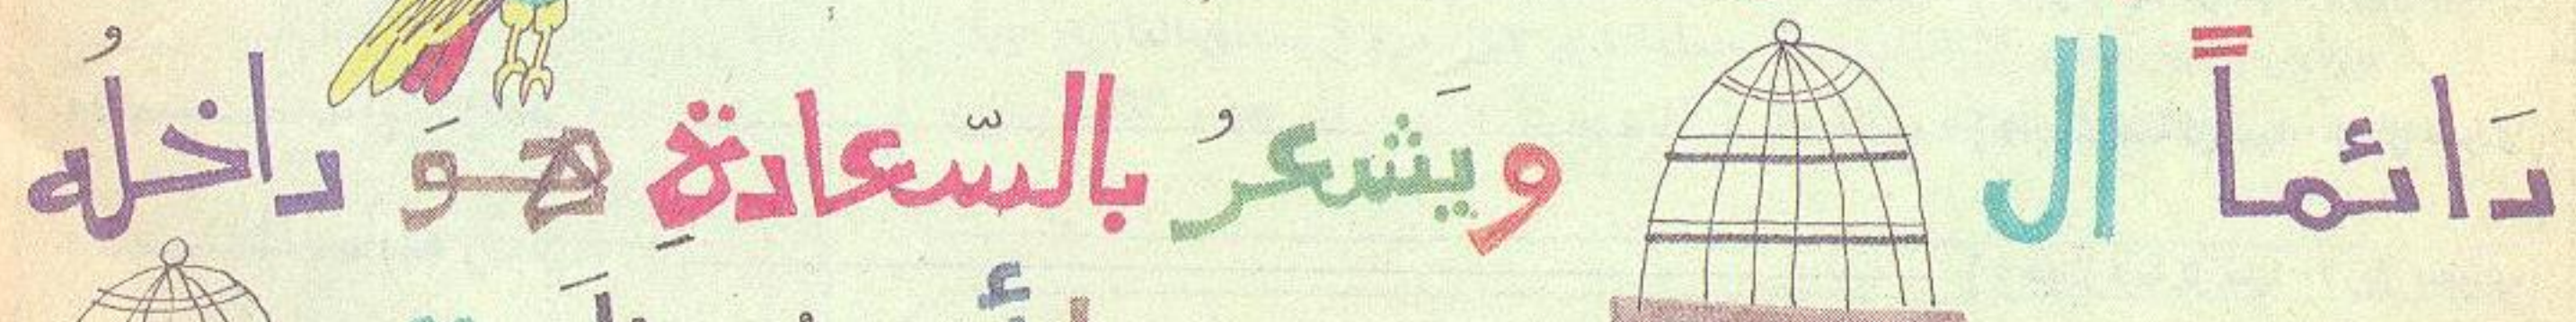 دَائماً ال ويَشعرُ بالسّعادةِ هوَ داخلُه